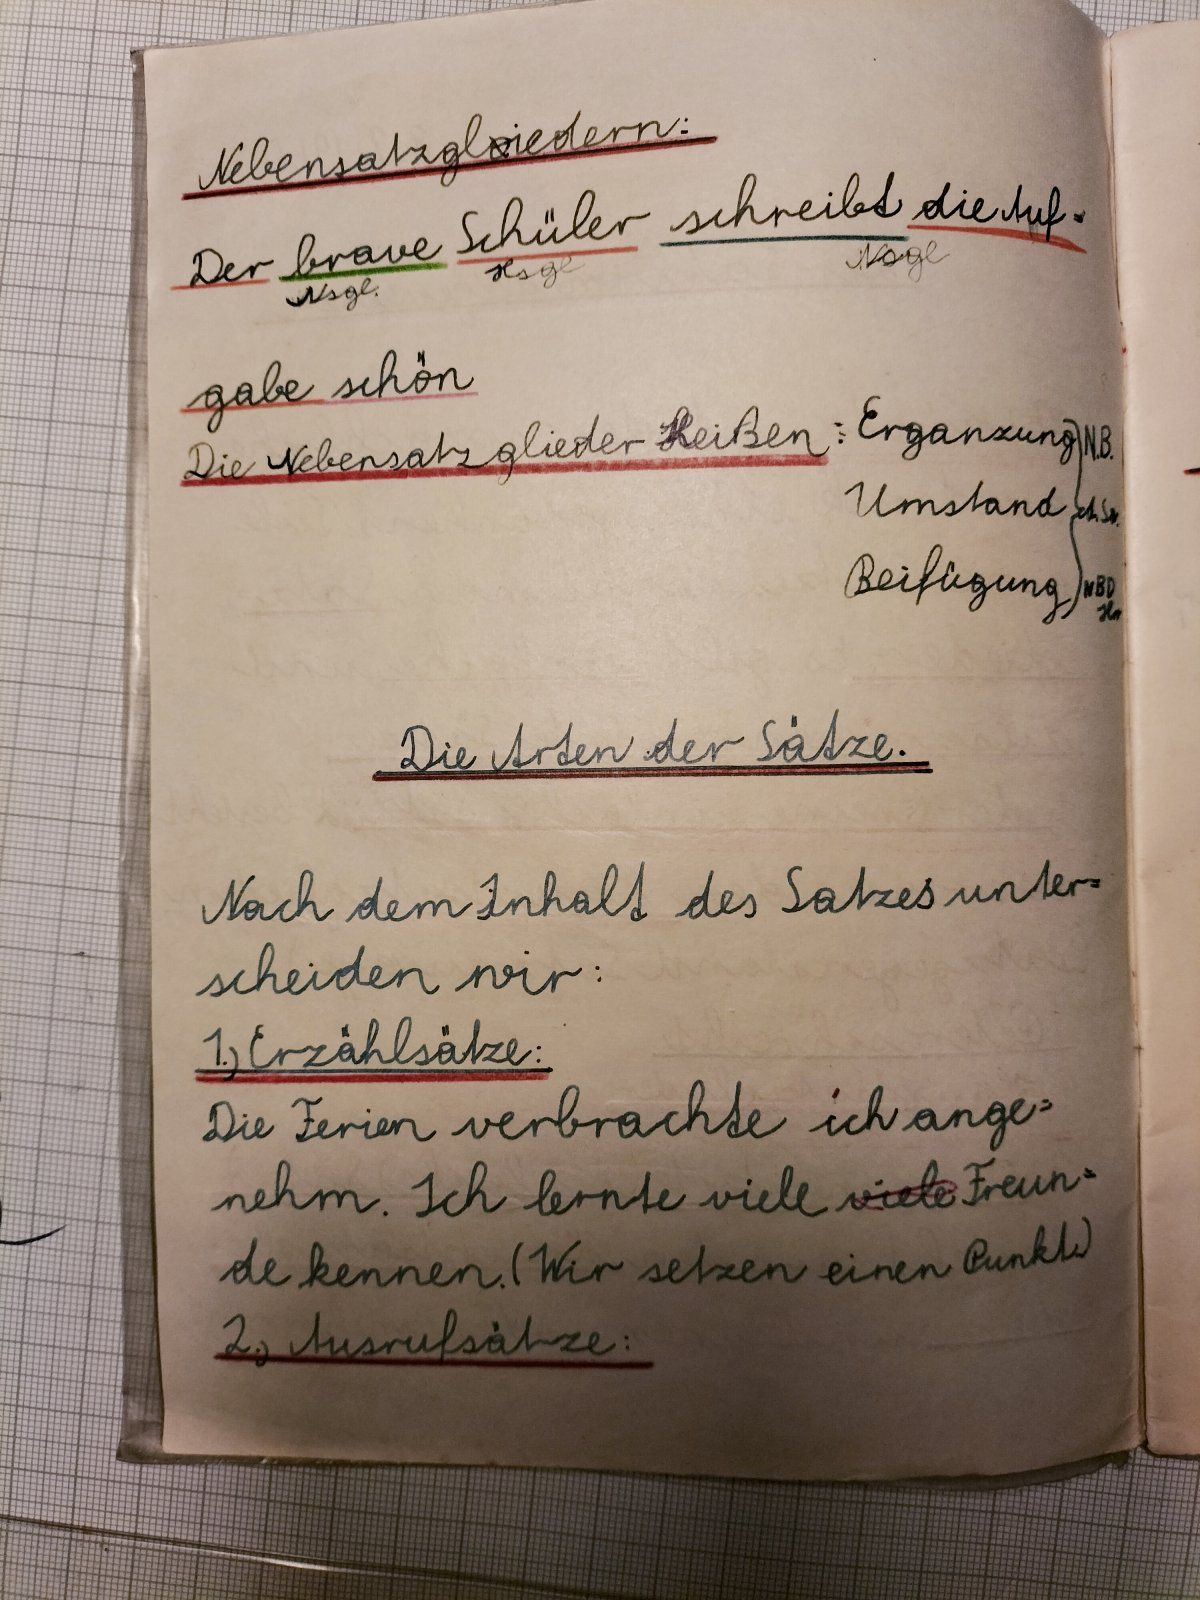 Nebensatzgliedern:
Der brave Schüler schreibt die Auf=
Nsgl. Hsgl Nsgl
gabe schön
Die Nebensatzglieder heißen: Ergänzung N.B.
Umstand
Beifügung
Die Arten der Sätze.
Nach dem Inhalt des Satzes unter=
scheiden wir:
1.) Erzählsätze:
Die Ferien verbrachte ich ange=
nehm. Ich lernte viele viele Freun=
de kennen. (Wir setzen einen Punkt.)
2.) Ausrufsätze: